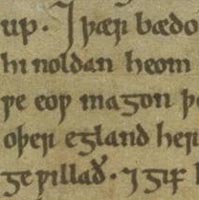 up. ⁊ þær bædo
hi noldan heom
ƿe eoƿ magon þe
oþer egland her
ge ƿillað. ⁊ gif h